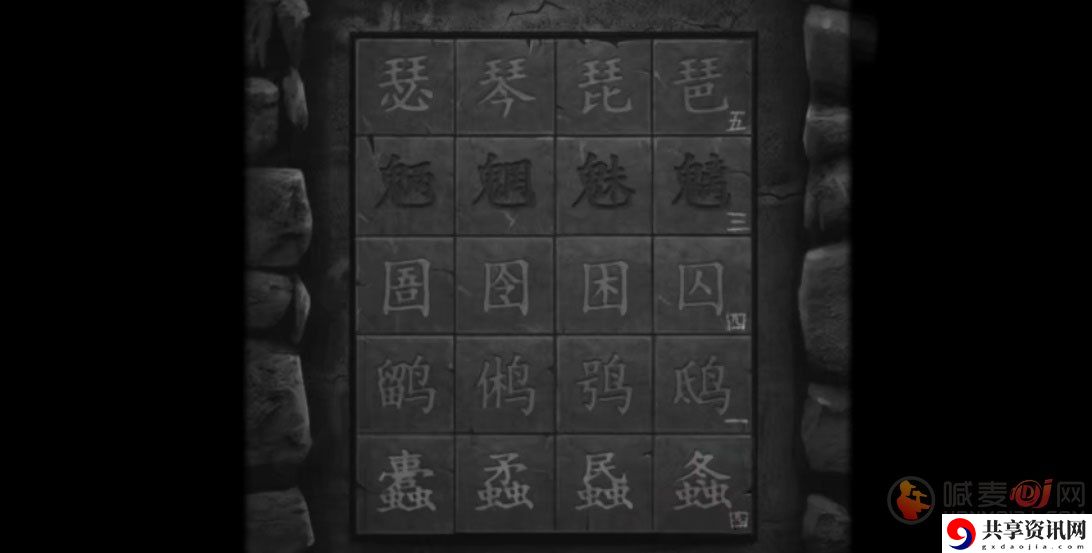 瑟 琴 琵 琶 五
魉 魍 魅 魑 三
圄 囹 困 囚 四
鹠 鸺 鸮 鸱 一
蠹 蟊 蟁 螽 四
喊麦DJ网
共享资讯网
gxdaojia.com